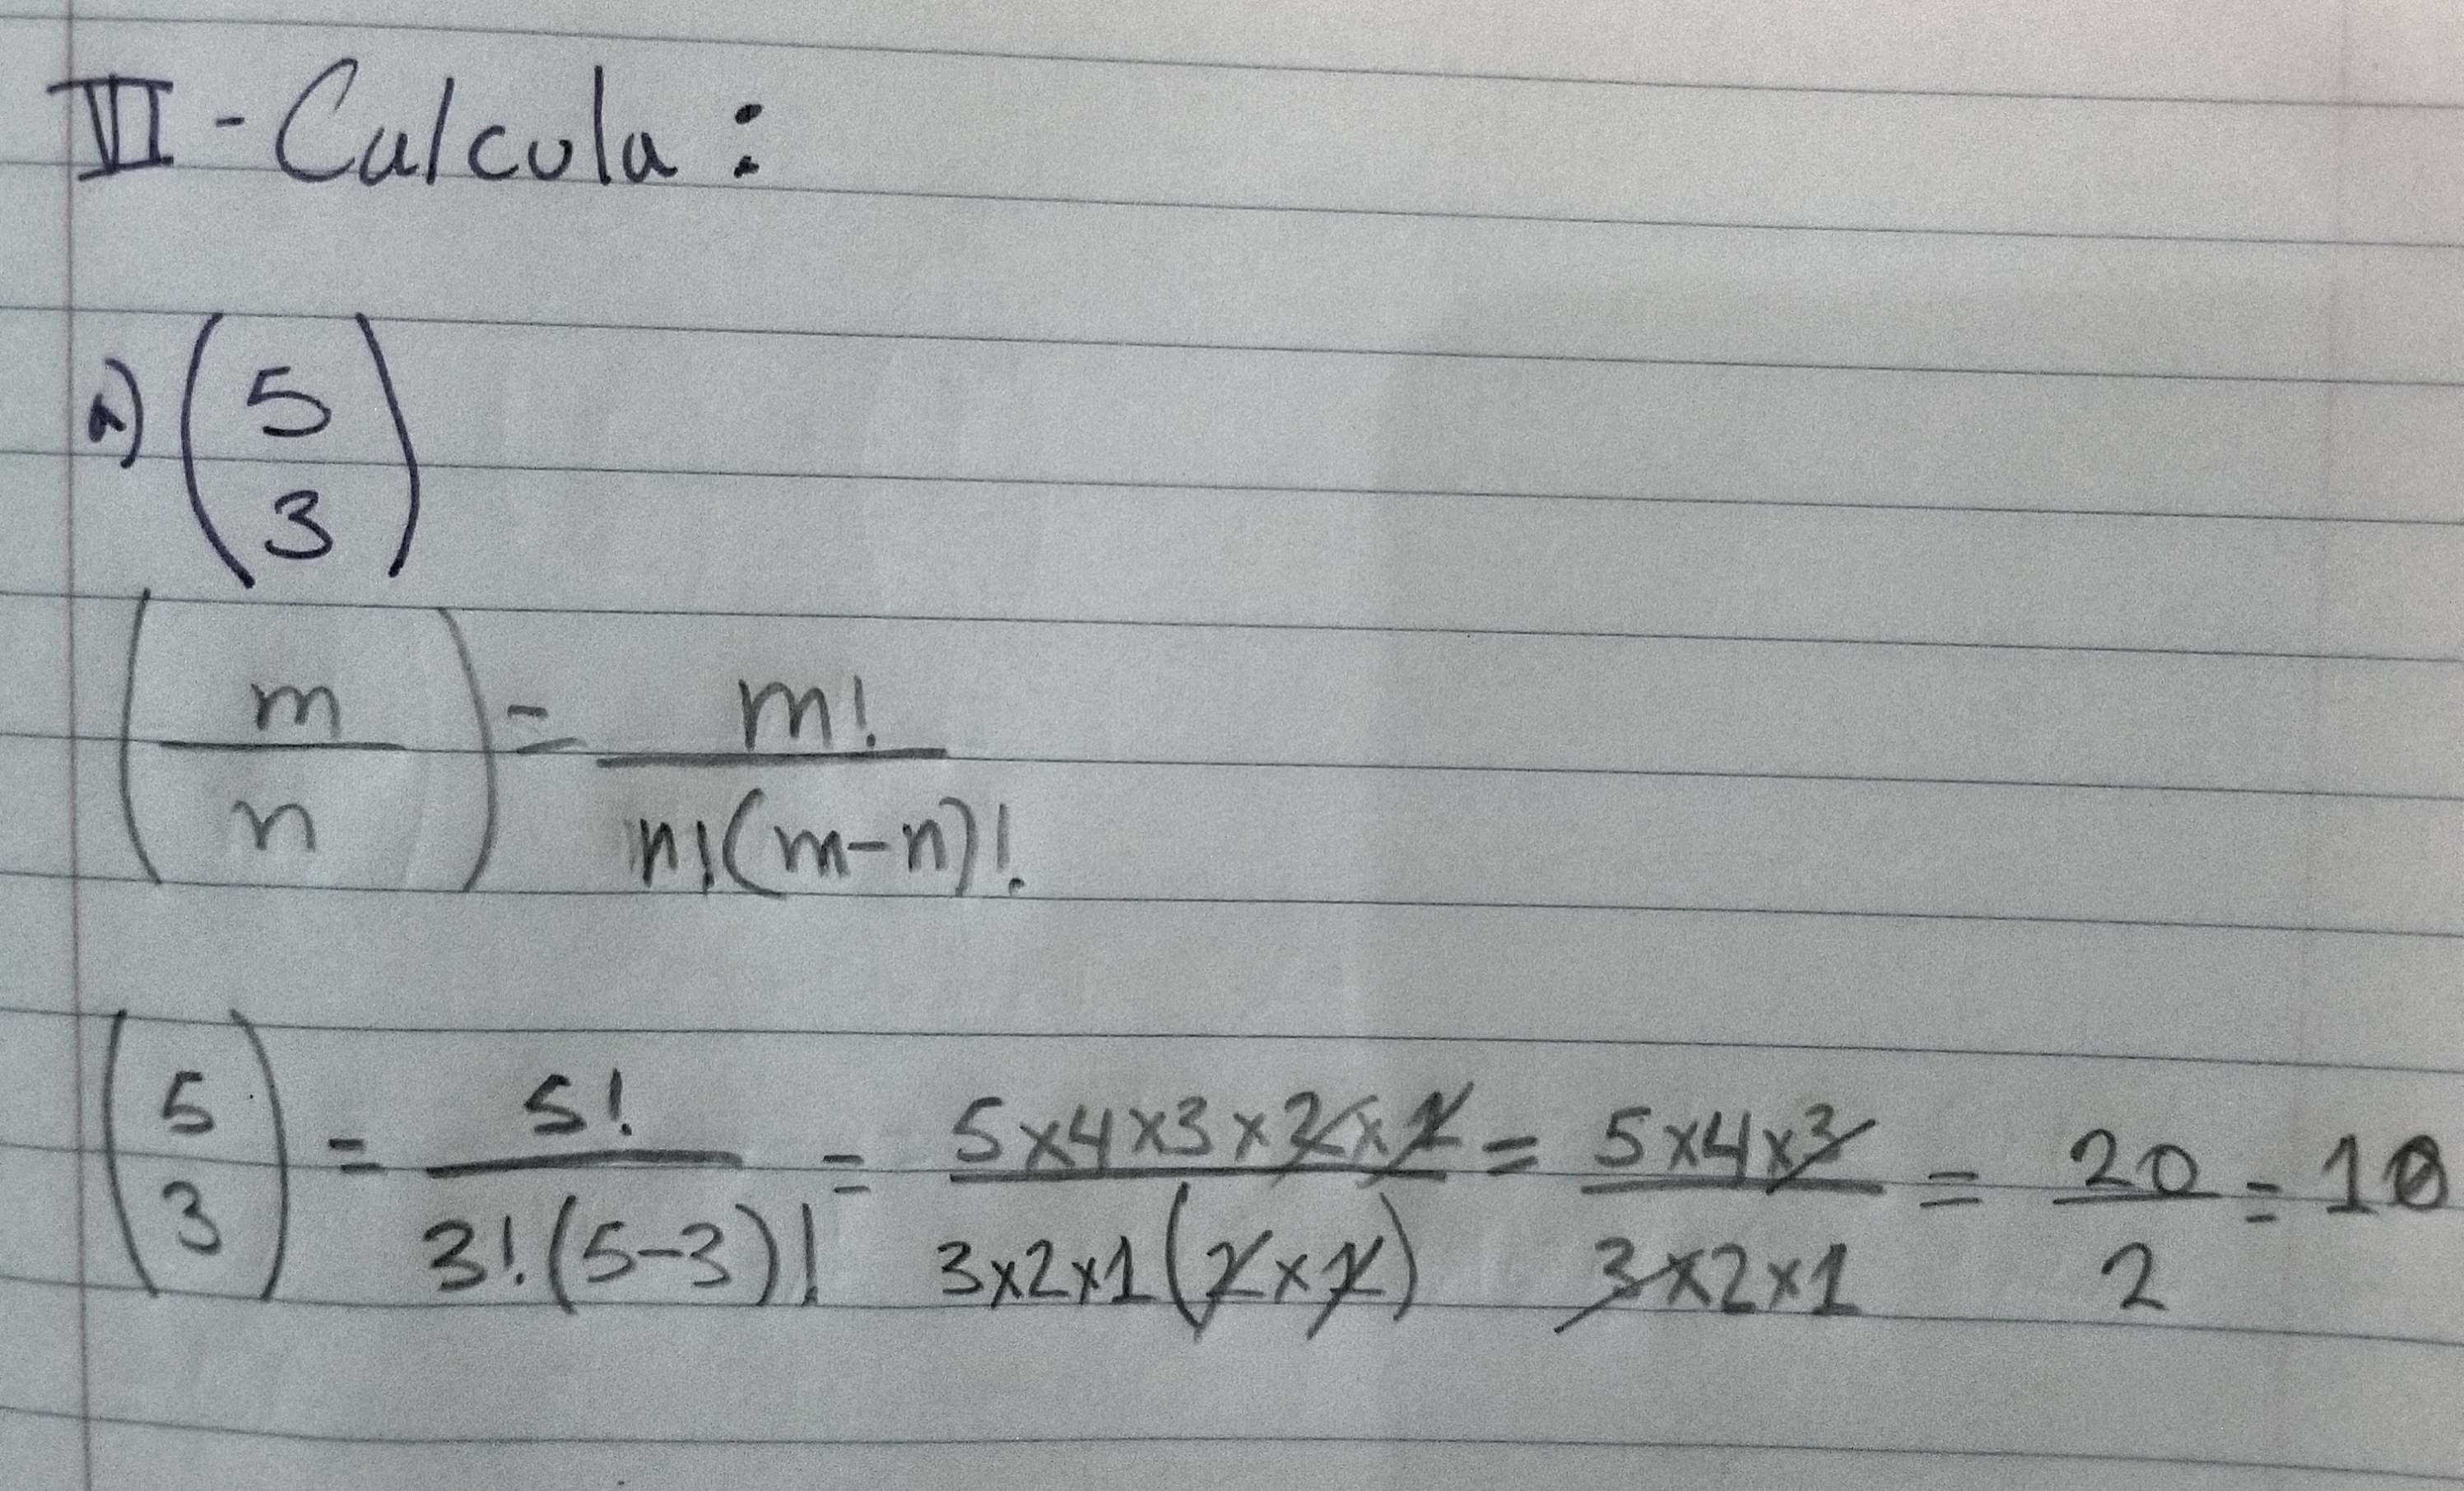 VI - Calcula:
a) (5 3)
(m/n) = m!/n!(m-n)!
(5 3) = 5!/3!(5-3)! = 5x4x3x2x1/3x2x1(2x1) = 5x4x3/3x2x1 = 20/2 = 10